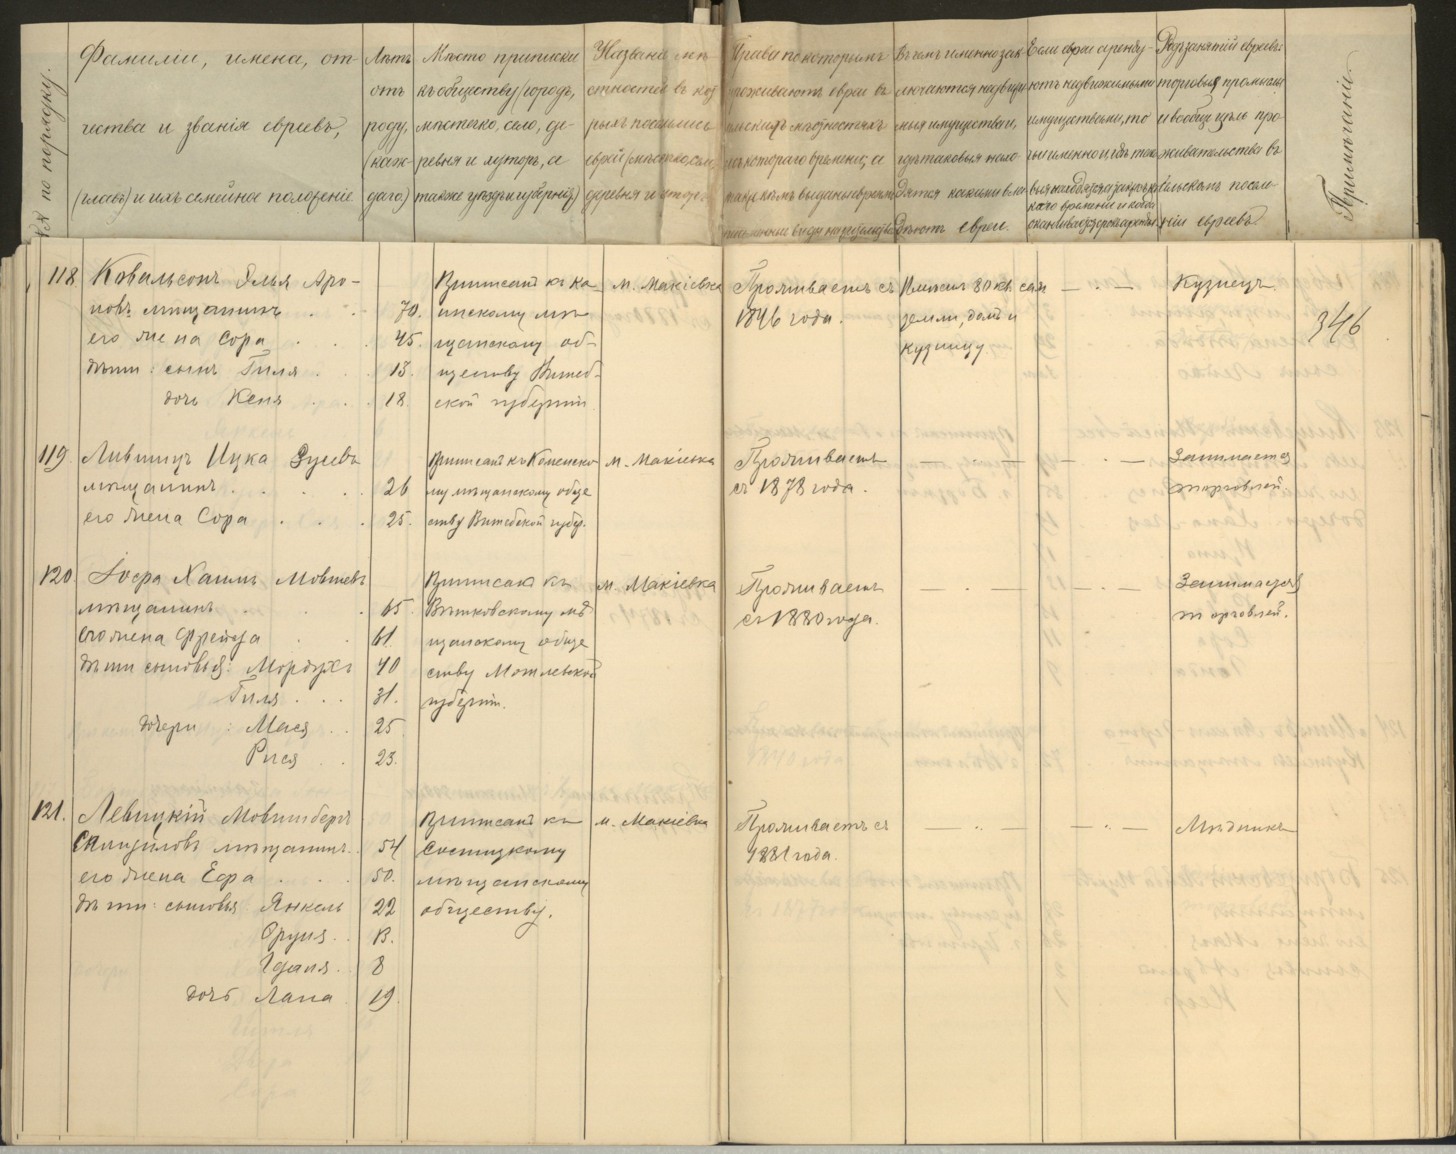 №№ по порядку.
Фамиліи, имена, от-
чества и званія евреевъ,
(главъ) и ихъ семейное положеніе
Лѣтъ
отъ
роду,
(каж-
даго)
Мѣсто приписки
къ обществу (городъ,
мѣстечко, село, де-
ревня и хуторъ, а
также уѣздъ и губернія)
Названіе мѣ-
стностей въ кото
рыхъ поселились
евреи (мѣстечко, село,
деревня и хуторъ
Права по которымъ
проживаютъ евреи въ
сельскихъ мѣстностяхъ
съ котораго времени, а
также кѣмъ выданы
письменные виды на
Въ чемъ именно зак-
лючаются недвижи
мыя имущества и,
гдѣ таковыя нахо
дятся какими вла-
дѣютъ евреи.
Если евреи аренду-
ютъ недвижимыми
имуществами, то
чьи именно и гдѣ тако
выя находятся и съ
каго времени и когда
оканчивается срокъ аренды
Родъ занятій евреевъ:
торговыя, промыслы
и вообще цѣль про-
живательства въ
сельскомъ посе-
ніи евреевъ.
Примѣчаніе
118. Ковальсонъ Элья Аро-
новъ мѣщанинъ . . 70.
его жена Сора . . . 45.
дѣти: сынъ Гиля . . 13.
дочь Кеня . . . 18.
Приписанъ къ Ка-
инскому мѣ
щанскому об-
ществу Витеб-
ской губерніи
м. Макіевка
Проживаетъ съ
1846 года.
Имѣетъ 80 кв. саж
земли, домъ и
кузницу
— . —
Кузнецъ.
346
119. Лившицъ Ицка Зусевъ
мѣщанинъ . . . . 26
его жена Сора . . . 25.
Приписанъ къ
му мѣщанскому обще
ству Витебской губер.
м. Макіевка
Проживаетъ
съ 1878 года.
— . — — . —
Занимается
торговлей.
120. Хаимъ Мовшевъ
мѣщанинъ . . . 65.
его жена Фрейда . . 61.
дѣти сыновья: Мордухъ 40
Гиля . . . 31.
дочери: Мася . . 25.
Рися . . 23.
Приписанъ къ
Вѣтковскому мѣ
щанскому обще
ству Могилевской
губерніи.
м. Макіевка
Проживаетъ
съ 1880 года.
— . — — . —
Занимается
торговлей.
121. Левицкій
мѣщанинъ. . 54
его жена Есфа . . . 50.
дѣти: сыновья Янкель 22
Сруня. . 13.
8
дочь Хана . 19.
Приписанъ къ
мѣщанскому
обществу.
м. Макіевка
Проживаетъ съ
1881 года.
— . — — . —
Мѣдникъ